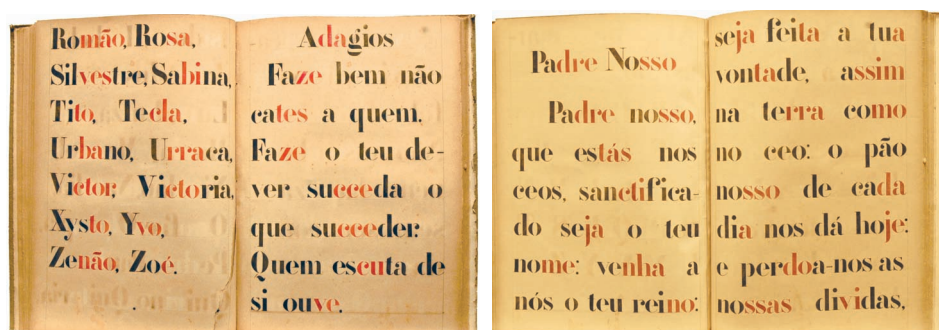 Romão, Rosa,
Silvestre, Sabina,
Tito, Tecla,
Urbano, Urraca,
Victor, Victoria,
Xysto, Yvo,
Zenão, Zoé.
Adagios
Faze bem não
cates a quem.
Faze o teu de-
ver succeda o
que succeder:
Quem escuta de
si ouve.
Padre Nosso
Padre nosso,
que estás nos
ceos, sanctifica-
do seja o teu
nome: venha a
nós o teu reino:
seja feita a tua
vontade, assim
na terra como
no ceo: o pão
nosso de cada
dia nos dá hoje:
e perdoa-nos as
nossas dividas,